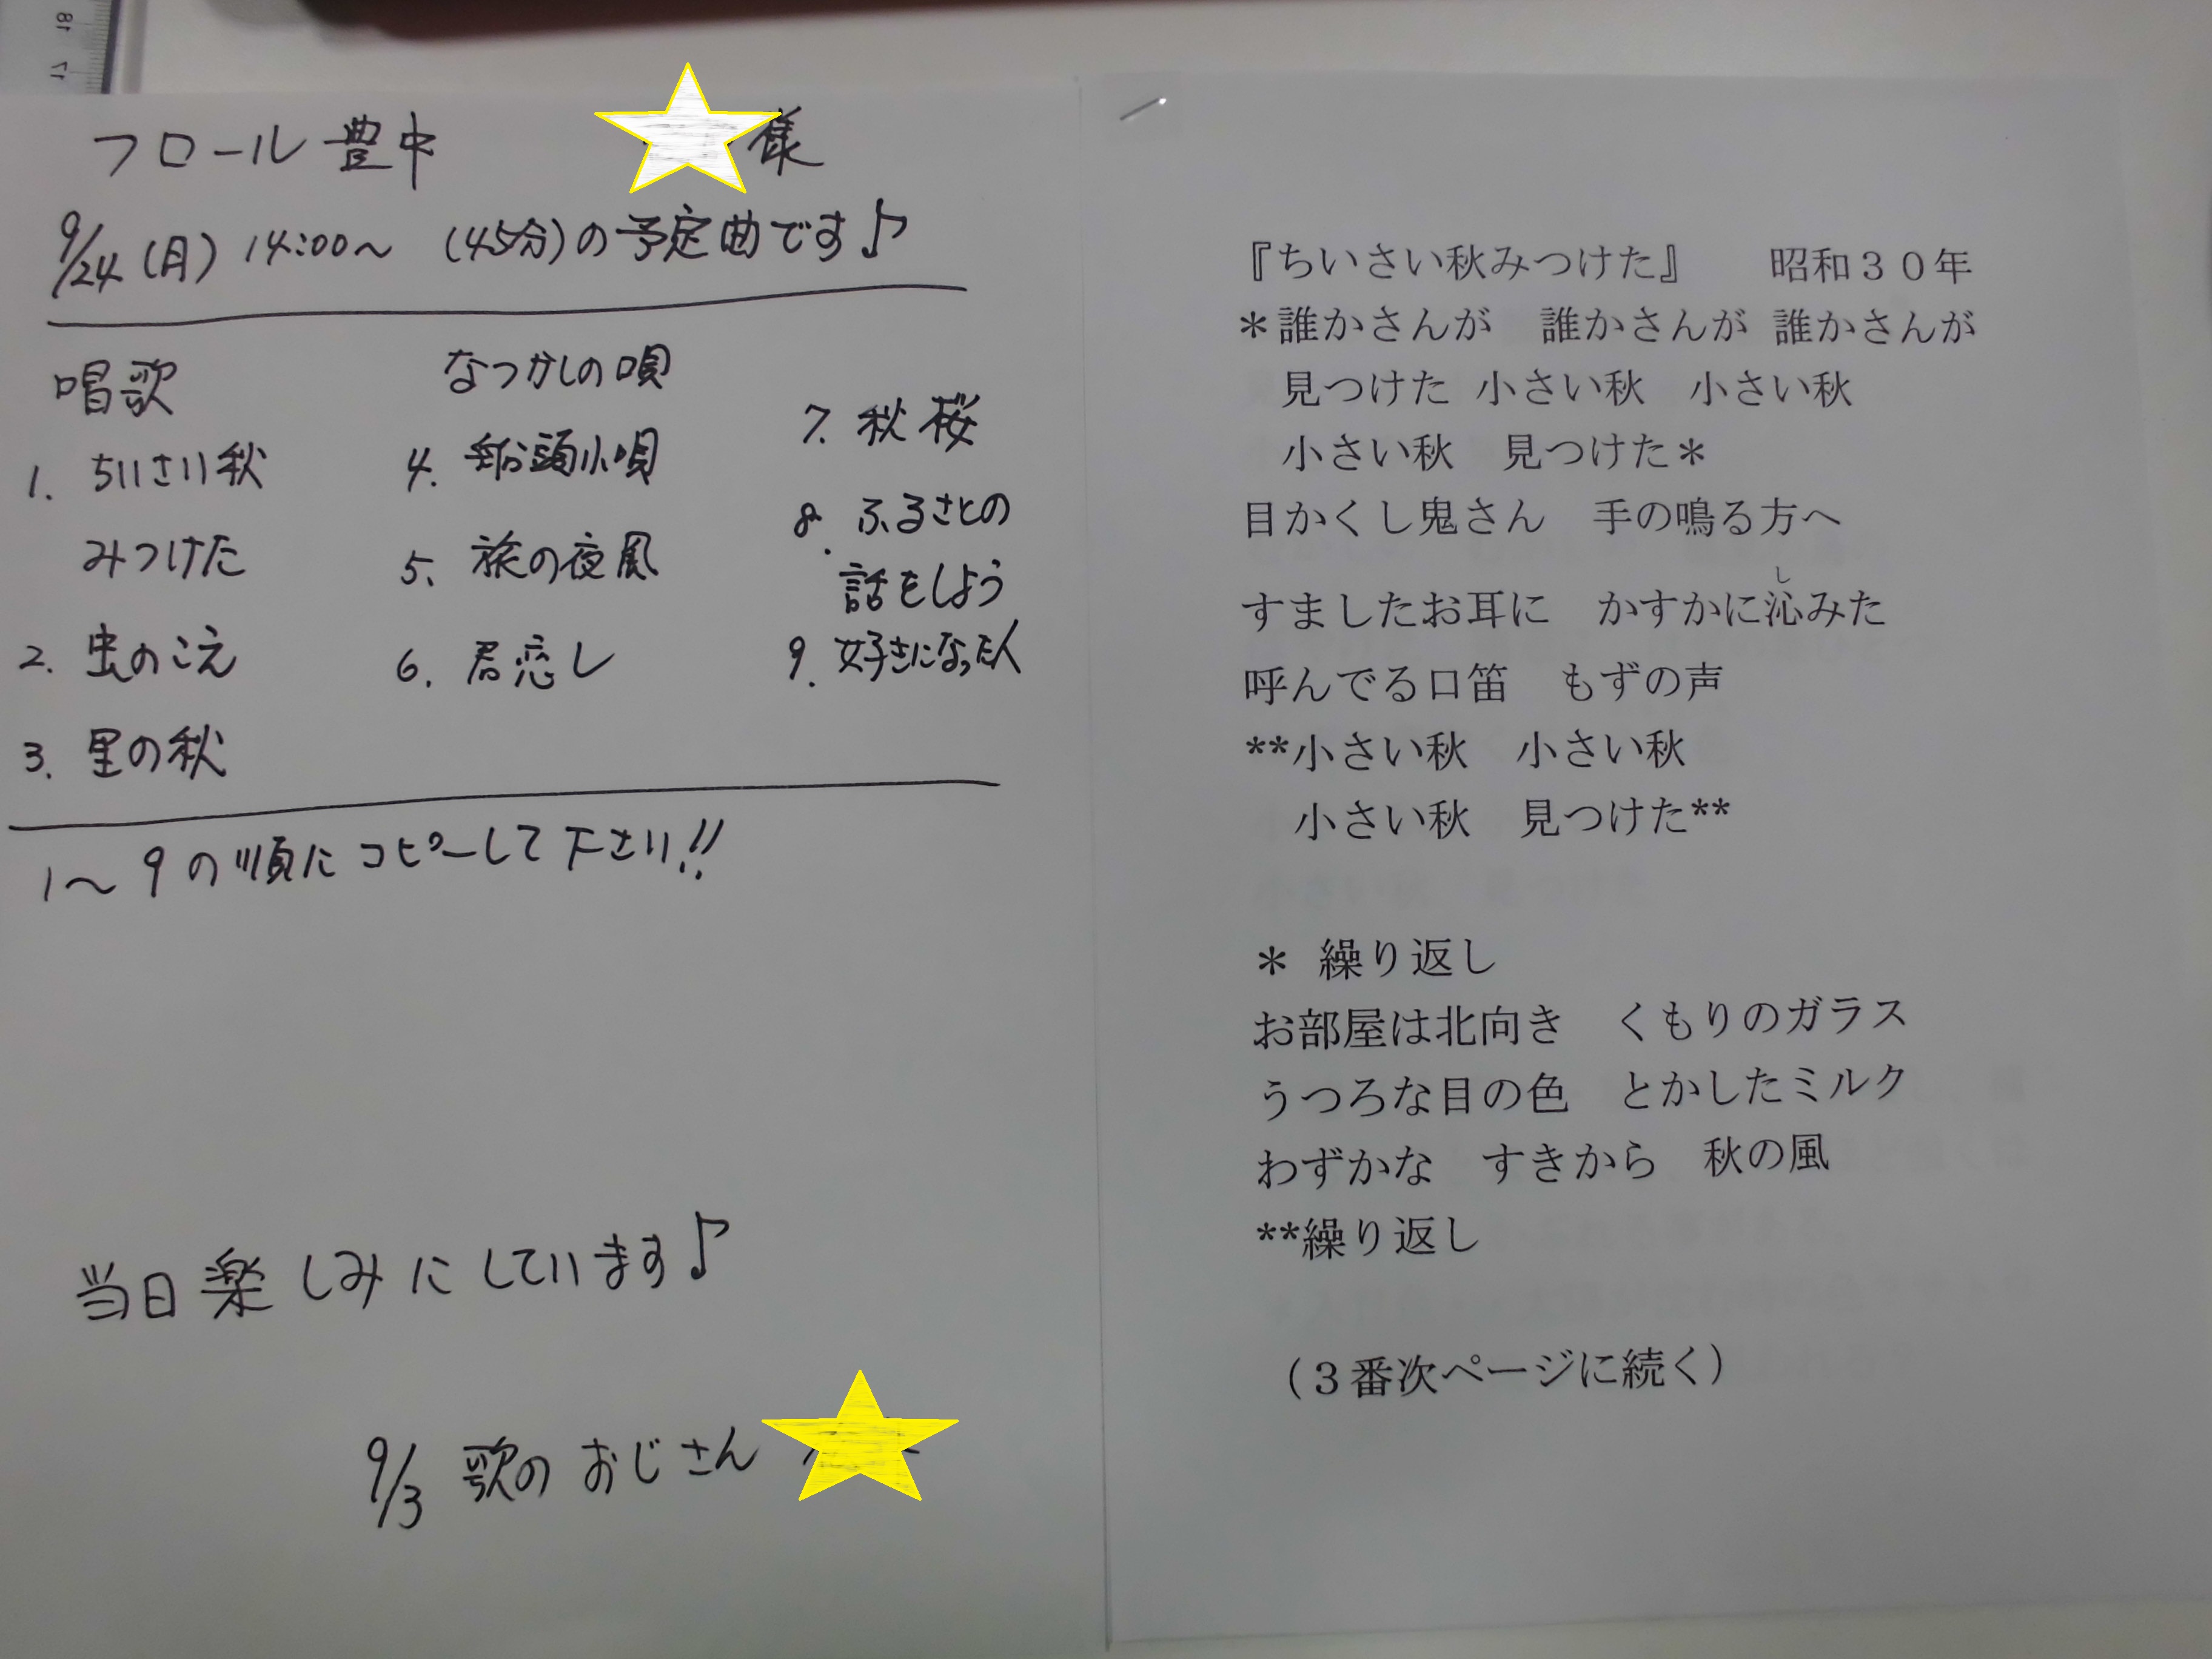 フロール豊中 様
9/24(月) 14:00〜 (45分)の予定曲です♪
唱歌
1. ちいさい秋
みつけた
2. 虫のこえ
3. 里の秋
なつかしの唄
4. 船頭小唄
5. 旅の夜風
6. 君恋し
7. 秋桜
8. ふるさとの
話をしよう
9. 好きになった人
1〜9の順にコピーして下さい!!
当日楽しみにしています♪
9/3 歌のおじさん
『ちいさい秋みつけた』 昭和３０年
＊誰かさんが 誰かさんが 誰かさんが
見つけた 小さい秋 小さい秋
小さい秋 見つけた＊
目かくし鬼さん 手の鳴る方へ
し
すましたお耳に かすかに沁みた
呼んでる口笛 もずの声
**小さい秋 小さい秋
小さい秋 見つけた**
＊ 繰り返し
お部屋は北向き くもりのガラス
うつろな目の色 とかしたミルク
わずかな すきから 秋の風
**繰り返し
（３番次ページに続く）
18
17